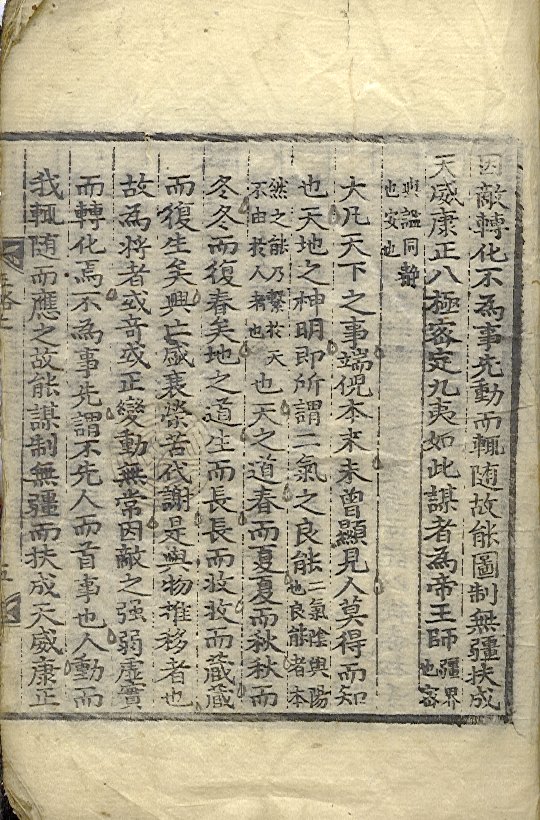 因敵轉化不為事先動而輒随故能圖制無疆扶成
天威康正八極密定九夷如此謀者為帝王師疆界也密
與謐同静也安也
大凡天下之事端倪本末未曾顯見人莫得而知
也天地之神明即所謂二氣之良能二氣陰與陽也良能者本
然之能乃繫於天不由於人者也也天之道春而夏夏而秋秋而
冬冬而復春矣地之道生而長長而收收而藏藏
而復生矣興亡盛衰榮苦代謝是與物推移者也
故為將者或奇或正變動無常因敵之強弱虛實
而轉化焉不為事先謂不先人而首事也人動而
我輒随而應之故能謀制無疆而扶成天威康正